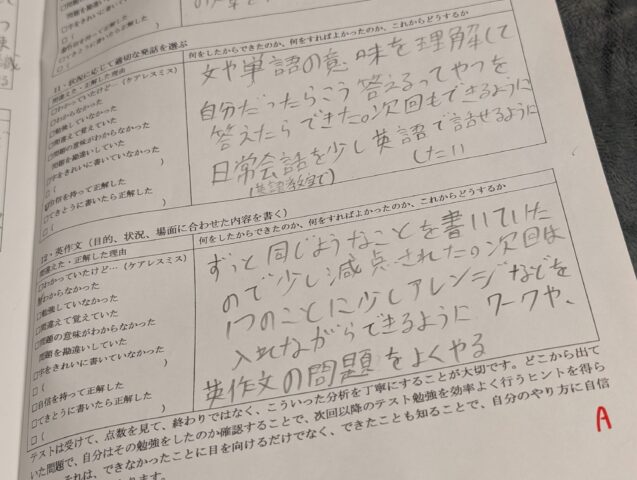 11・状況に応じて適切な発話を選ぶ
間違えた・正解した理由
□わかっていたけど…（ケアレスミス）
□わからなかった
□勉強していなかった
□間違えて覚えていた
□問題の意味がわからなかった
□問題を勘違いしていた
□字をきれいに書いていなかった
□（　　　　　）
自信を持って正解した
□てきとうに書いたら正解した
□（
何をしたからできたのか、何をすればよかったのか、これからどうするか
文や単語の意味を理解して
自分だったらこう答えるってやつを
答えたらできた。次回もできるように
日常会話を少し英語で話せるように
(英語教室で)
したい
12・英作文（目的、状況、場面に合わせた内容を書く）
間違えた・正解した理由
□わかっていたけど…（ケアレスミス）
わからなかった
□勉強していなかった
□間違えて覚えていた
□問題の意味がわからなかった
問題を勘違いしていた
□字をきれいに書いていなかった
□（　　　　　）
□自信を持って正解した
□てきとうに書いたら正解した
□（
何をしたからできたのか、何をすればよかったのか、これからどうするか
ずっと同じようなことを書いていた
ので少し減点された。次回は
1つのことに少しアレンジなどを
入れながらできるように ワークや、
英作文の問題をよくやる
テストは受けて、点数を見て、終わりではなく、こういった分析を丁寧にすることが大切です。どこから出て
いた問題で、自分はその勉強をしたのか確認することで、次回以降のテスト勉強を効率よく行うヒントを得ら
それは、できなかったことに目を向けるだけでなく、できたことも知ることで、自分のやり方に自信
A